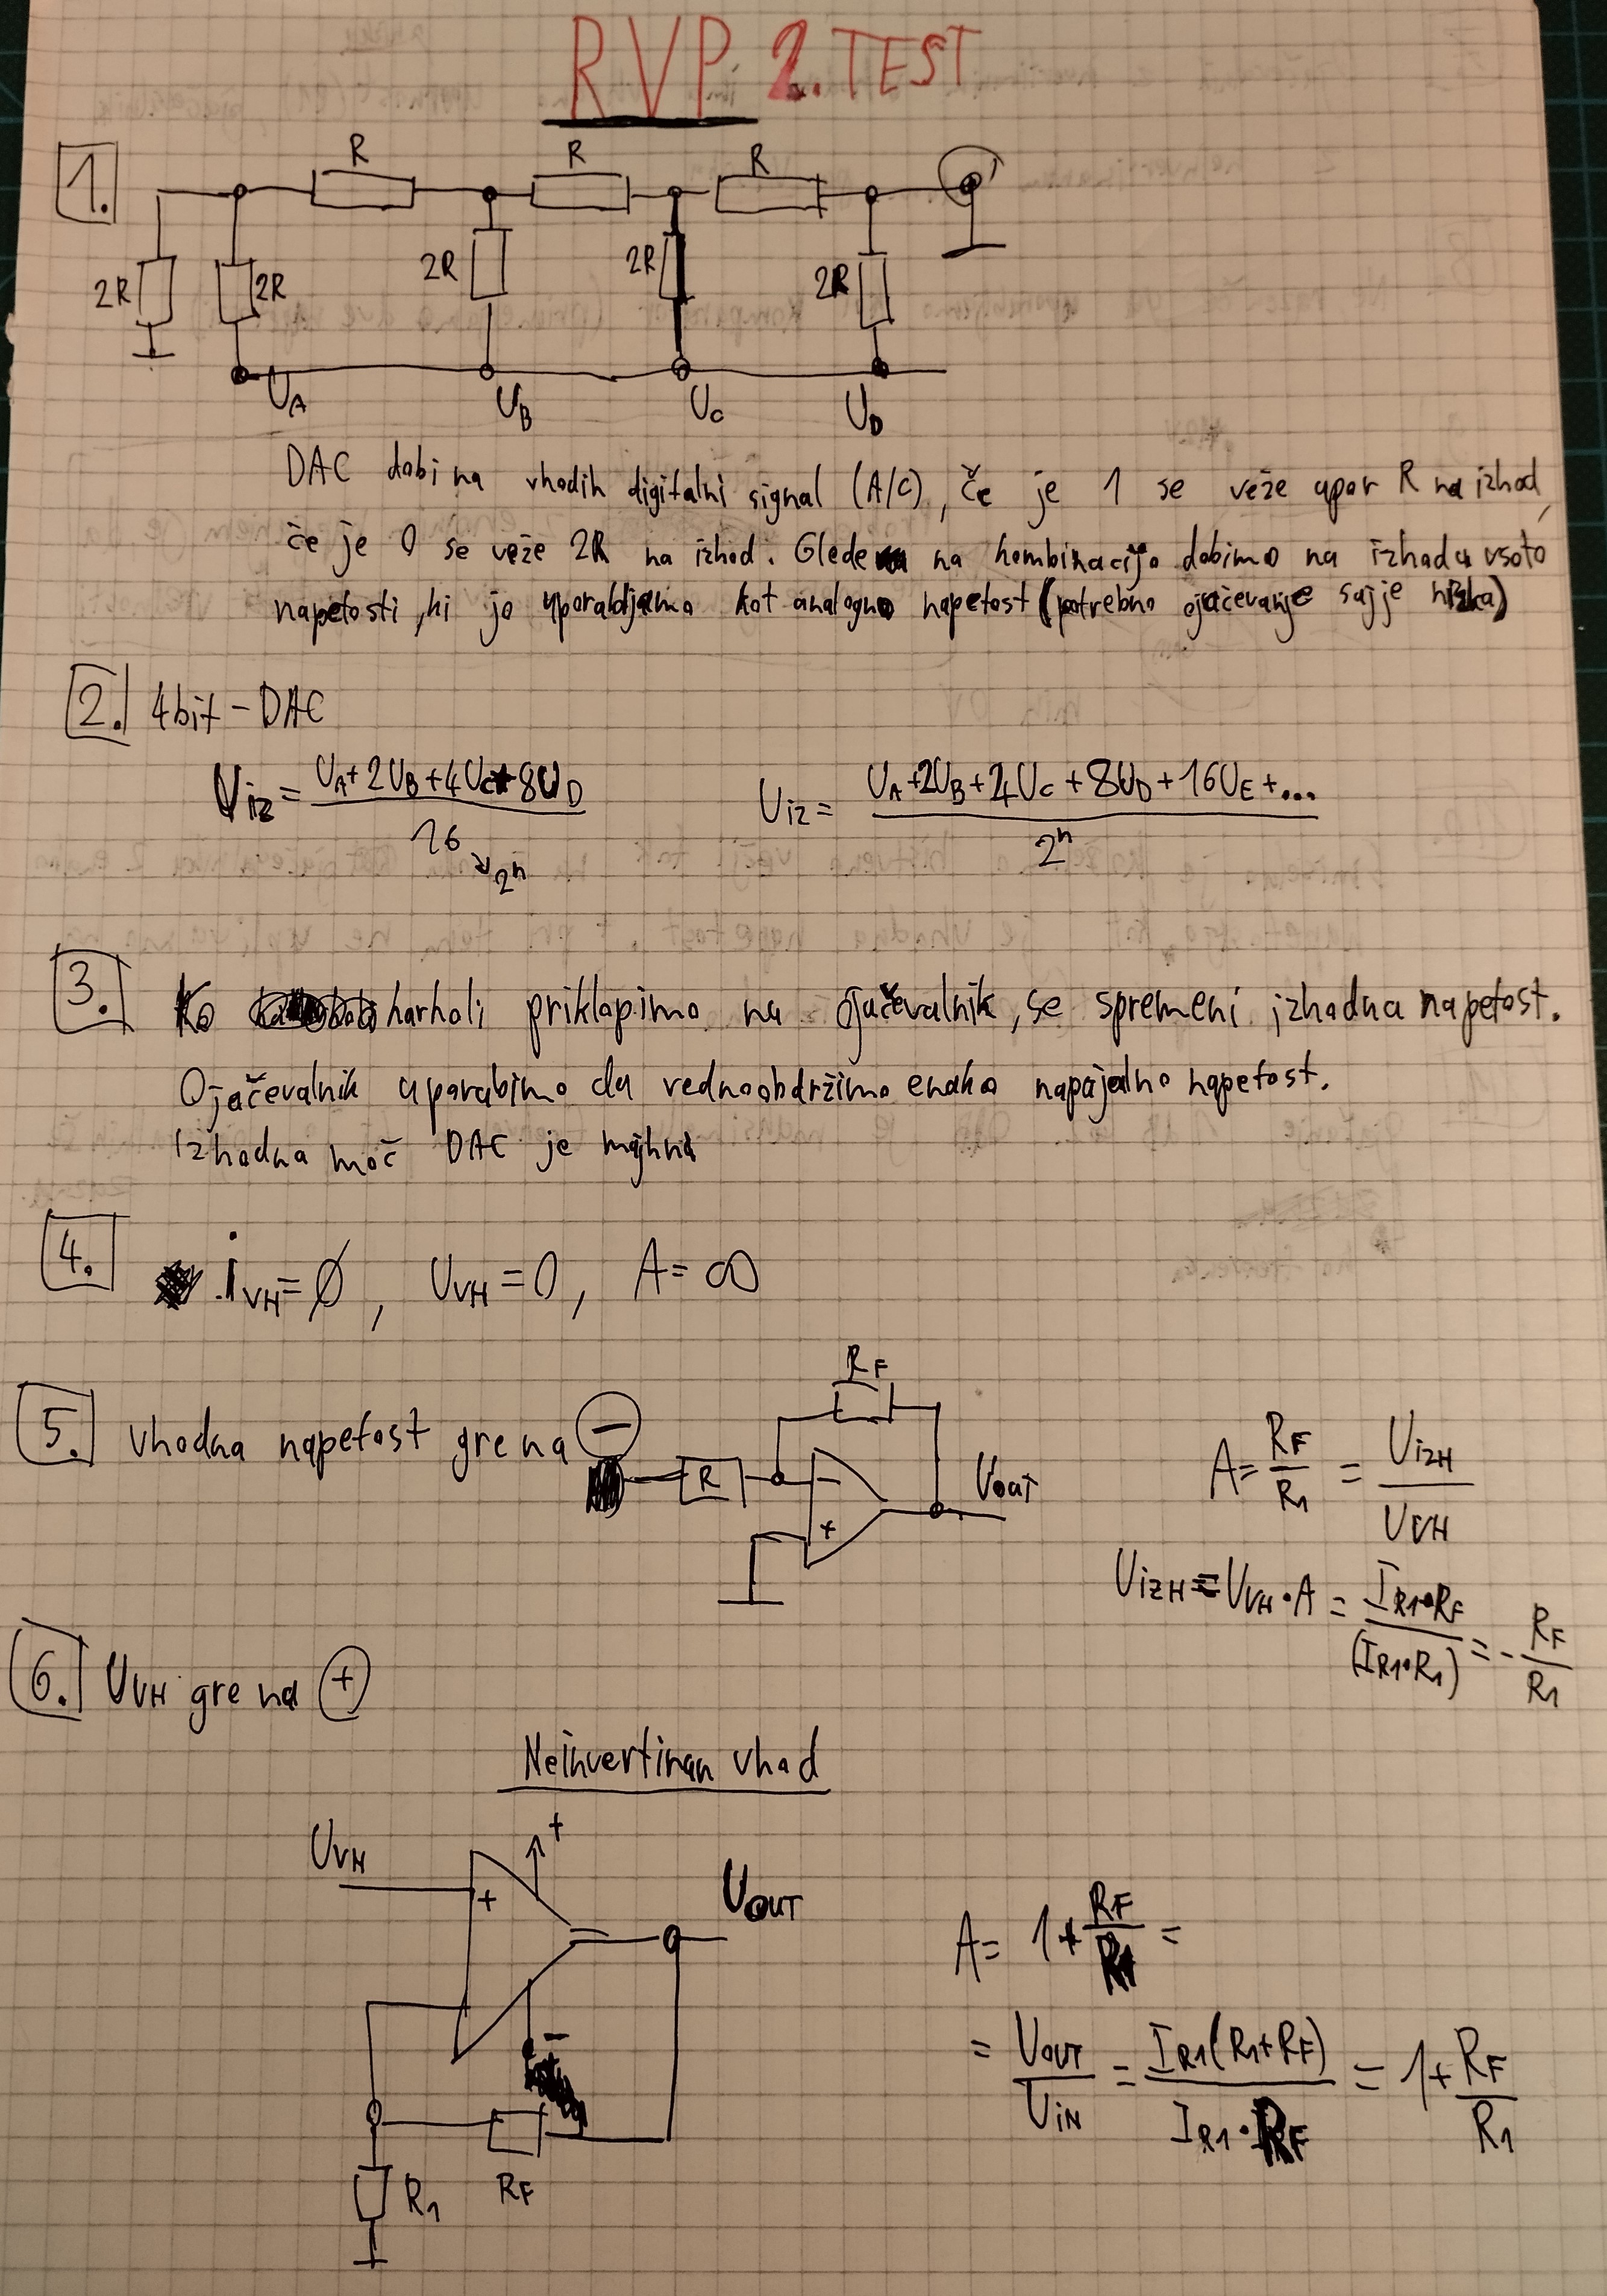 RVP 2. TEST
1.
R R R
2R 2R 2R 2R 2R
UA UB UC UD
DAC dobi na vhodih digitalni signal (A/C), če je 1 se veže upor R na izhod,
če je 0 se veže 2R na izhod. Glede na kombinacijo dobimo na izhodu vsoto
napetosti, ki jo uporabljamo kot analogno napetost (potrebno ojačevanje saj je nizka)
2. 4bit - DAC
Uiz = (UA + 2UB + 4UC + 8UD) / 16 → 2ⁿ
Uiz = (UA + 2UB + 4UC + 8UD + 16UE + ...) / 2ⁿ
3. Ko karkoli priklopimo na ojačevalnik, se spremeni izhodna napetost.
Ojačevalnik uporabimo da vedno obdržimo enako napajalno napetost.
Izhodna moč DAC je majhna
4. iVH = Ø, UVH = 0, A = ∞
5. vhodna napetost gre na −
RF
R
−
+
Uout
A = RF / R1 = UizH / UVH
UizH = UVH · A = IR1 · RF / (IR1 · R1) = - RF / R1
6. UVH gre na +
Neinvertiran vhod
UVH
+
+
UOUT
−
R1 RF
A = 1 + RF / R1 =
= UOUT / UiN = IR1 (R1 + RF) / IR1 · RF = 1 + RF / R1